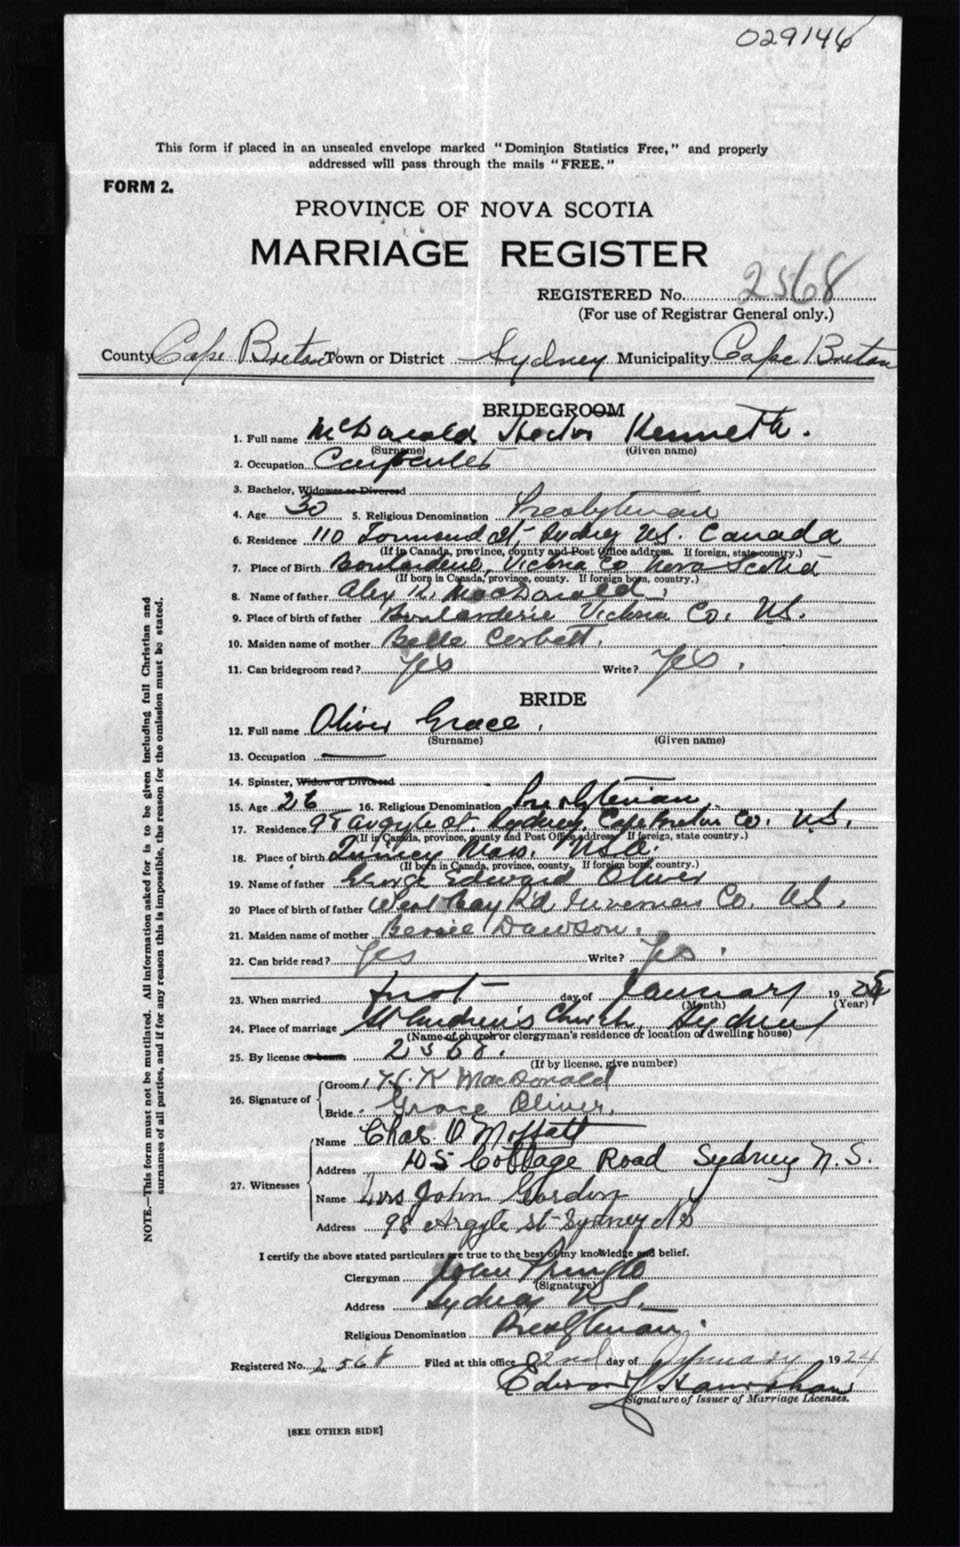 029146
This form if placed in an unsealed envelope marked "Dominion Statistics Free," and properly
addressed will pass through the mails "FREE."
FORM 2.
PROVINCE OF NOVA SCOTIA
MARRIAGE REGISTER
REGISTERED No. 2568
(For use of Registrar General only.)
County Cape Breton Town or District Sydney Municipality Cape Breton
BRIDEGROOM
1. Full name McDonald Hector Kenneth.
(Surname) (Given name)
2. Occupation Carpenter
3. Bachelor, Widower or Divorced
4. Age 30 5. Religious Denomination Presbyterian
6. Residence 110 Townsend St. Sydney N.S. Canada
(If in Canada, province, county and Post Office address. If foreign, state country.)
7. Place of Birth Boulardarie, Victoria Co Nova Scotia
(If born in Canada, province, county. If foreign born, country.)
8. Name of father Alex MacDonald
9. Place of birth of father Boularderie Victoria Co. N.S.
10. Maiden name of mother Belle Corbett.
11. Can bridegroom read? Yes Write? Yes.
BRIDE
12. Full name Oliver Grace.
(Surname) (Given name)
13. Occupation
14. Spinster, Widow or Divorced
15. Age 26 16. Religious Denomination Presbyterian
17. Residence Argyle St. Sydney, Cape Breton Co. N.S.
(If in Canada, province, county and Post Office address. If foreign, state country.)
18. Place of birth Quincy Mass. U.S.A.
(If born in Canada, province, county. If foreign born, country.)
19. Name of father George Edward Oliver
20 Place of birth of father West Bay Rd. Inverness Co. N.S.
21. Maiden name of mother Bessie Dawson.
22. Can bride read? Yes Write? Yes.
23. When married first day of January 19
(Month) (Year)
24. Place of marriage St Andrew's Church, Sydney
(Name of church or clergyman's residence or location of dwelling house)
25. By license or banns 2568.
(If by license, give number)
26. Signature of
Groom H. K MacDonald
Bride Grace Oliver.
27. Witnesses
Name Chas. O. Moffatt
Address 105 Cottage Road Sydney N.S.
Name Mrs John Gordon
Address 98 Argyle St Sydney NS
I certify the above stated particulars are true to the best of my knowledge and belief.
Clergyman John Pringle
(Signature)
Address Sydney N.S.
Religious Denomination Presbyterian.
Registered No. 2568 Filed at this office 2nd day of January 1924
Signature of Issuer of Marriage Licenses.
[SEE OTHER SIDE]
NOTE.—This form must not be mutilated. All information asked for is to be given including full Christian and
surnames of all parties, and if for any reason this is impossible, the reason for the omission must be stated.